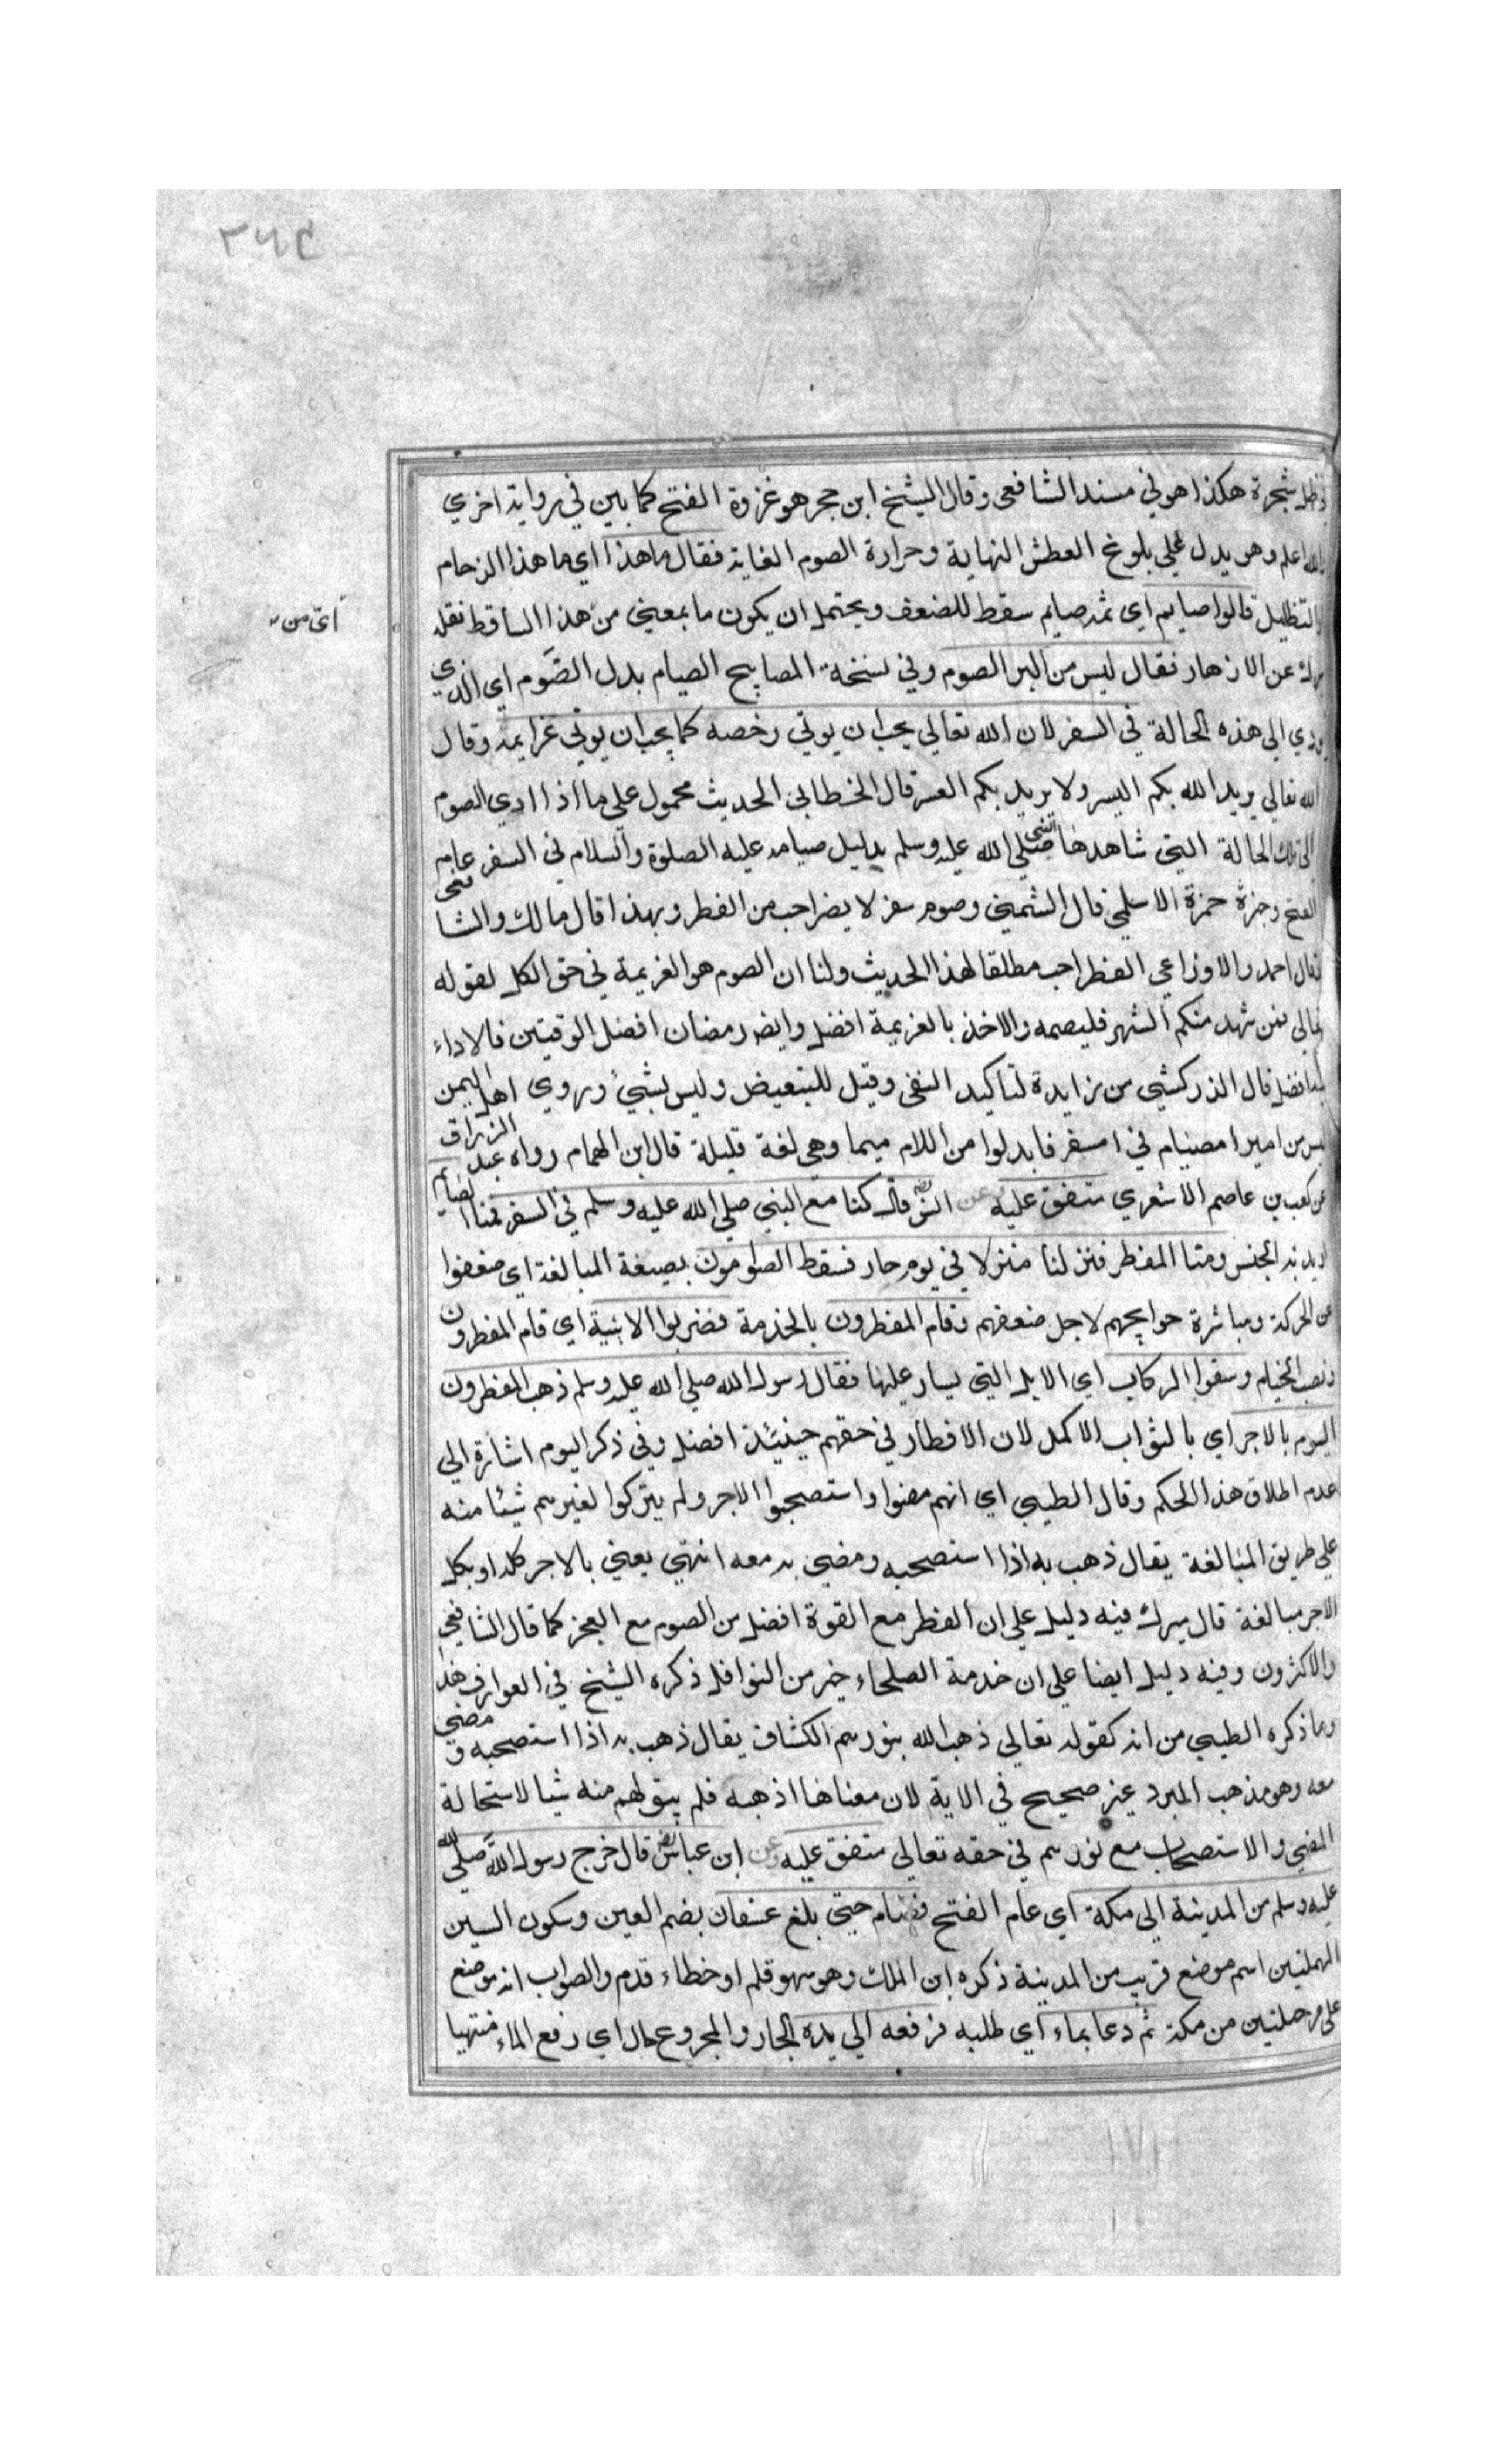 ٢٦٤
في ظل شجرة هكذا هو في مسند الشافعي وقال الشيخ ابن حجر هو غزوة الفتح كما بين في رواية اخري
والله اعلم وهو يدل علي بلوغ العطش النهاية وحرارة الصوم الغاية فقال ما هذا اي ما هذا الزحام
والتظليل قالوا صايم اي ثمه صايم سقط للضعف ويحتمل ان يكون ما بمعني من هذا الساقط نقله
اي من
ميرك عن الازهار فقال ليس من البر الصوم وفي نسخة المصابيح الصيام بدل الصَّوم اي الذي
يودي الي هذه الحالة في السفر لان الله تعالي يحب ان يوتي رخصه كما يحب ان يوتي عزايمه وقال
الله تعالي يريد الله بكم اليسر ولا يريد بكم العسر قال الخطابي الحديث محمول علي ما اذا ادي الصوم
الي تلك الحالة التي شاهدها النبي صلي الله عليه وسلم بدليل صيامه عليه الصلوة والسلام في السفر عام
الفتح وخبره حمزة الاسلمي قال الشمني وصوم سفر لا يضر احب من الفطر وبهذا قال مالك والشافعي
وقال احمد والاوزاعي الفطر احب مطلقا لهذا الحديث ولنا ان الصوم هو العزيمة في حق الكل لقوله
تعالي فمن شهد منكم الشهر فليصمه والاخذ بالعزيمة افضل وايضا رمضان افضل الوقتين فالاداء
فيه افضل قال الزركشي من زايدة لتاكيد النفي وقيل للتبعيض وليس بشيء وروي اهل اليمن
ليس من امبر امصيام في امسفر فابدلوا من اللام ميما وهي لغة قليلة قال ابن الهمام رواه عبد الرزاق
عن كعب بن عاصم الاشعري متفق عليه وعن انس رض قال كنا مع النبي صلي الله عليه وسلم في السفر فمنا الصايم
اريد به الجنس ومنا المفطر فنزلنا منزلا في يوم حار فسقط الصوامون بصيغة المبالغة اي ضعفوا
عن الحركة ومباشرة حوايجهم لاجل ضعفهم وقام المفطرون بالخدمة فضربوا الابنية اي قام المفطرون
ونصب الخيام وسقوا الركاب اي الابل التي يسار عليها فقال رسول الله صلي الله عليه وسلم ذهب المفطرون
اليوم بالاجر اي بالثواب الاكمل لان الافطار في حقهم حينئذ افضل وفي ذكر اليوم اشارة الي
عدم اطلاق هذا الحكم وقال الطيبي اي انهم مضوا واستصحبوا الاجر ولم يتركوا لغيرهم شيئا منه
علي طريق المبالغة يقال ذهب به اذا استصحبه ومضي به معه انتهي يعني بالاجر كله او بكل
الاجر مبالغة قال ميرك فيه دليل علي ان الفطر مع القوة افضل من الصوم مع العجز كما قال الشافعي
والاكثرون وفيه دليل ايضا علي ان خدمة الصلحاء خير من النوافل ذكره الشيخ في العوارف هذا
وما ذكره الطيبي من انه كقوله تعالي ذهب الله بنورهم الكشاف يقال ذهب به اذا استصحبه ومضي
معه وهو مذهب المبرد غير صحيح في الاية لان معناها اذهبه فلم يبق لهم منه شيا لاستحالة
المضي والاستصحاب مع نورهم في حقه تعالي متفق عليه وعن ابن عباس رض قال خرج رسول الله صلي الله
عليه وسلم من المدينة الي مكة اي عام الفتح فصام حتي بلغ عسفان بضم العين وسكون السين
المهملتين اسم موضع قريب من المدينة ذكره ابن الملك وهو سهو قلم او خطاء قدم والصواب انه موضع
علي مرحلتين من مكة ثم دعا بماء اي طلبه فرفعه الي يده الجار والمجرور حال اي رفع الماء منتهيا